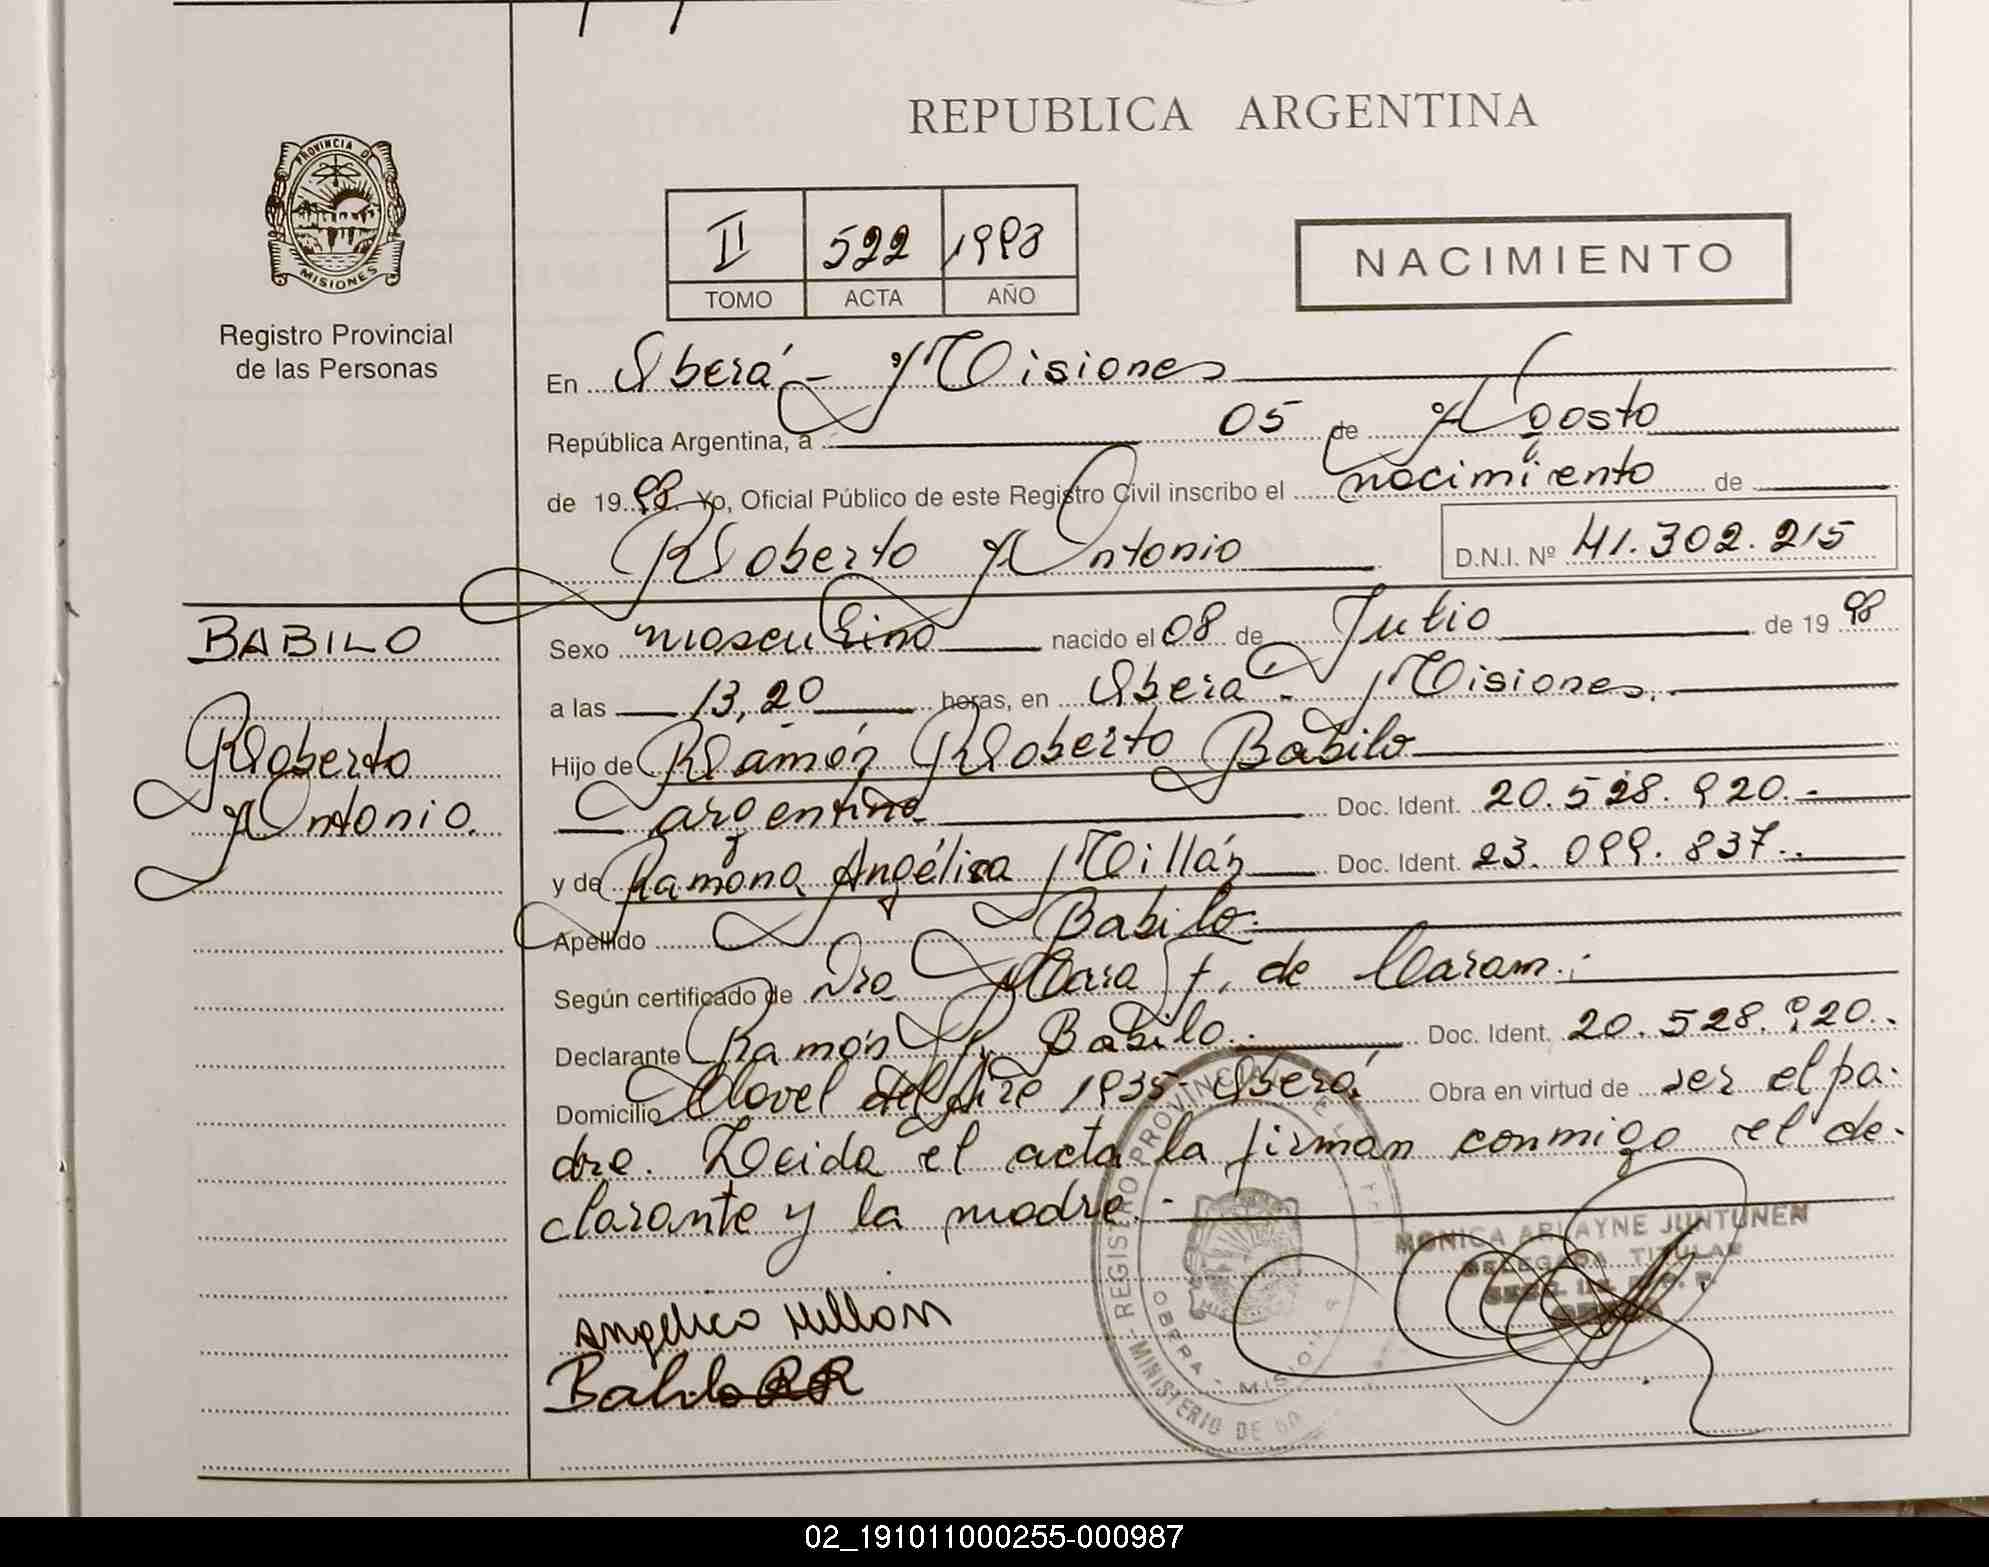 REPUBLICA ARGENTINA
PROVINCIA DE
MISIONES
Registro Provincial
de las Personas
II 522 1998
TOMO ACTA AÑO
NACIMIENTO
En Oberá - Misiones
República Argentina, a 05 de Agosto
de 1998 Yo, Oficial Público de este Registro Civil inscribo el nacimiento de
Roberto Antonio
D.N.I. Nº 41.302.215
BABILO
Roberto
Antonio.
Sexo masculino nacido el 08 de Julio de 1998
a las 13,20 horas, en Oberá - Misiones.
Hijo de Ramón Roberto Babilo
argentino Doc. Ident. 20.528.920.-
y de Ramona Angélica Millán Doc. Ident. 23.099.837.
Apellido Babilo.
Según certificado de Dra Mara F. de Maram.
Declarante Ramón R. Babilo. Doc. Ident. 20.528.920.
Domicilio Clavel del Aire 1935 - Oberá Obra en virtud de ser el pa-
dre. Leida el acta la firman conmigo el de-
clarante y la madre.-
MONICA ARLAYNE JUNTUNEN
DELEGADA TITULAR
REGISTRO PROVINCIAL DE
MINISTERIO DE
OBERA - MISIO
Angelica Millan
Babilo RR
02_191011000255-000987